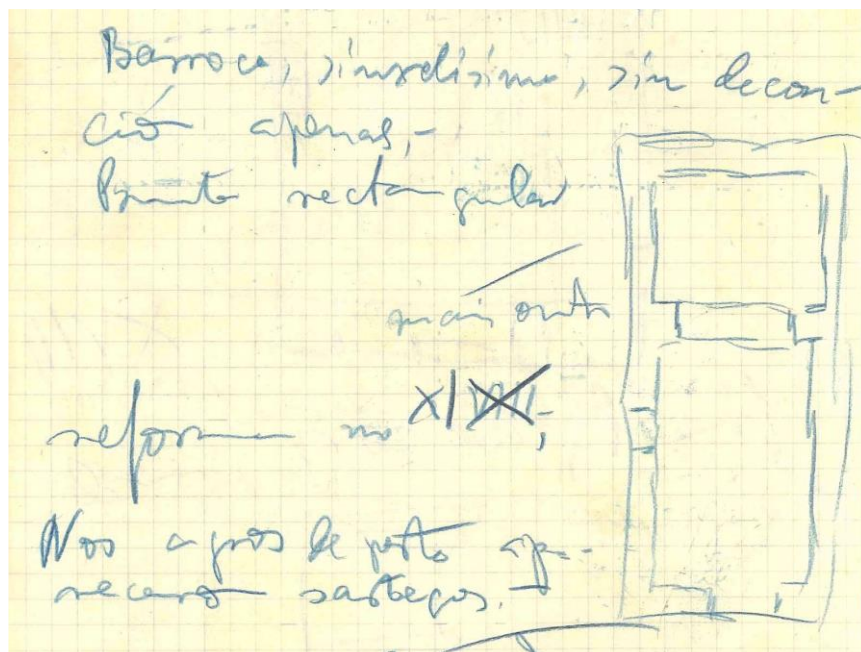 Barroca, sinxelísima, sin decora-
ción apenas,-
Planta rectangular
máis outo
reforma no XI
Nos agros de perto apa-
receron sartegos.-